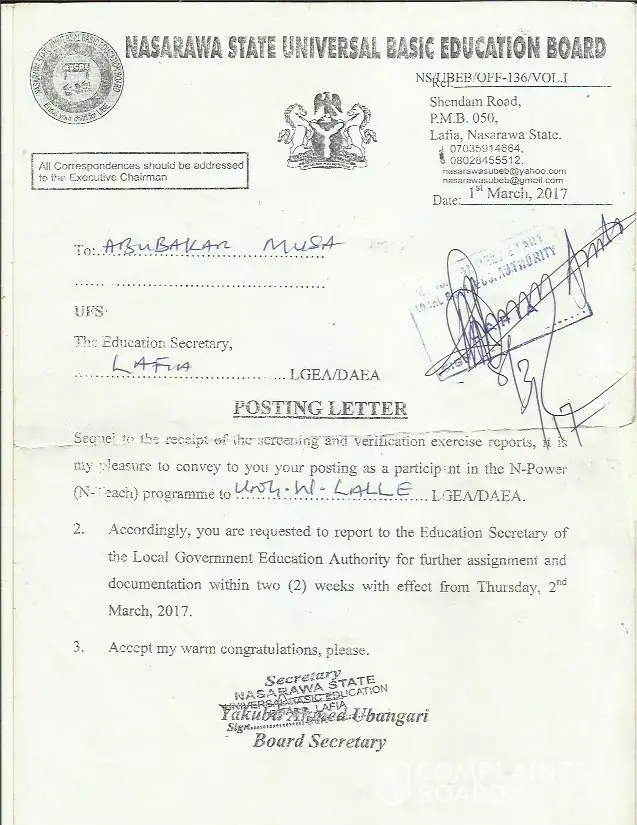 NASARAWA STATE UNIVERSAL BASIC EDUCATION BOARD
NASARAWA STATE UNIVERSAL BASIC EDUCATION BOARD
NS/UBEB/OFF-136/VOL.I
Ref:
Shendam Road,
P.M.B. 050,
Lafia, Nasarawa State.
07035914664,
08028455512,
nasarawasubeb@yahoo.com
nasarawasubeb@gmail.com
Date: 1st March, 2017
All Correspondences should be addressed
to the Executive Chairman
To: ABUBAKAR MUSA
UFS:
The Education Secretary,
LAFIA LGEA/DAEA
AUTHORITY
LAFIA
8/3/17
POSTING LETTER
Sequel to the receipt of the screening and verification exercise reports, it is
my pleasure to convey to you your posting as a participant in the N-Power
(N-Teach) programme to LALLE LGEA/DAEA.
2. Accordingly, you are requested to report to the Education Secretary of
the Local Government Education Authority for further assignment and
documentation within two (2) weeks with effect from Thursday, 2nd
March, 2017.
3. Accept my warm congratulations, please.
Secretary
NASARAWA STATE
UNIVERSAL BASIC EDUCATION
BOARD, LAFIA
Yakubu Ahmed Ubangari
Sign
Board Secretary
COMPLAINT
BOARD